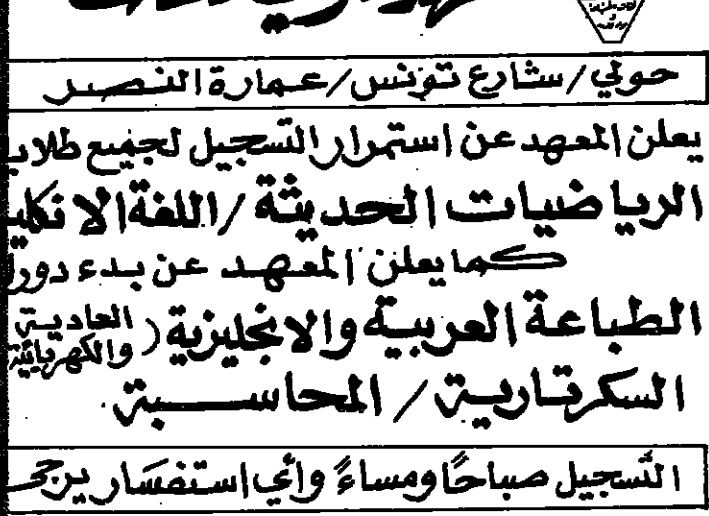 حولي/شارع تونس/عمارة النصر
يعلن المعهد عن استمرار التسجيل لجميع طلاب
الرياضيات الحديثة/اللغة الانكليـ
كما يعلن المعهد عن بدء دور
الطباعة العربية والانجليزية (العادية والكهربائية
السكرتارية/المحاسبة.
التسجيل صباحًا ومساءً وأي استفسار يرجى